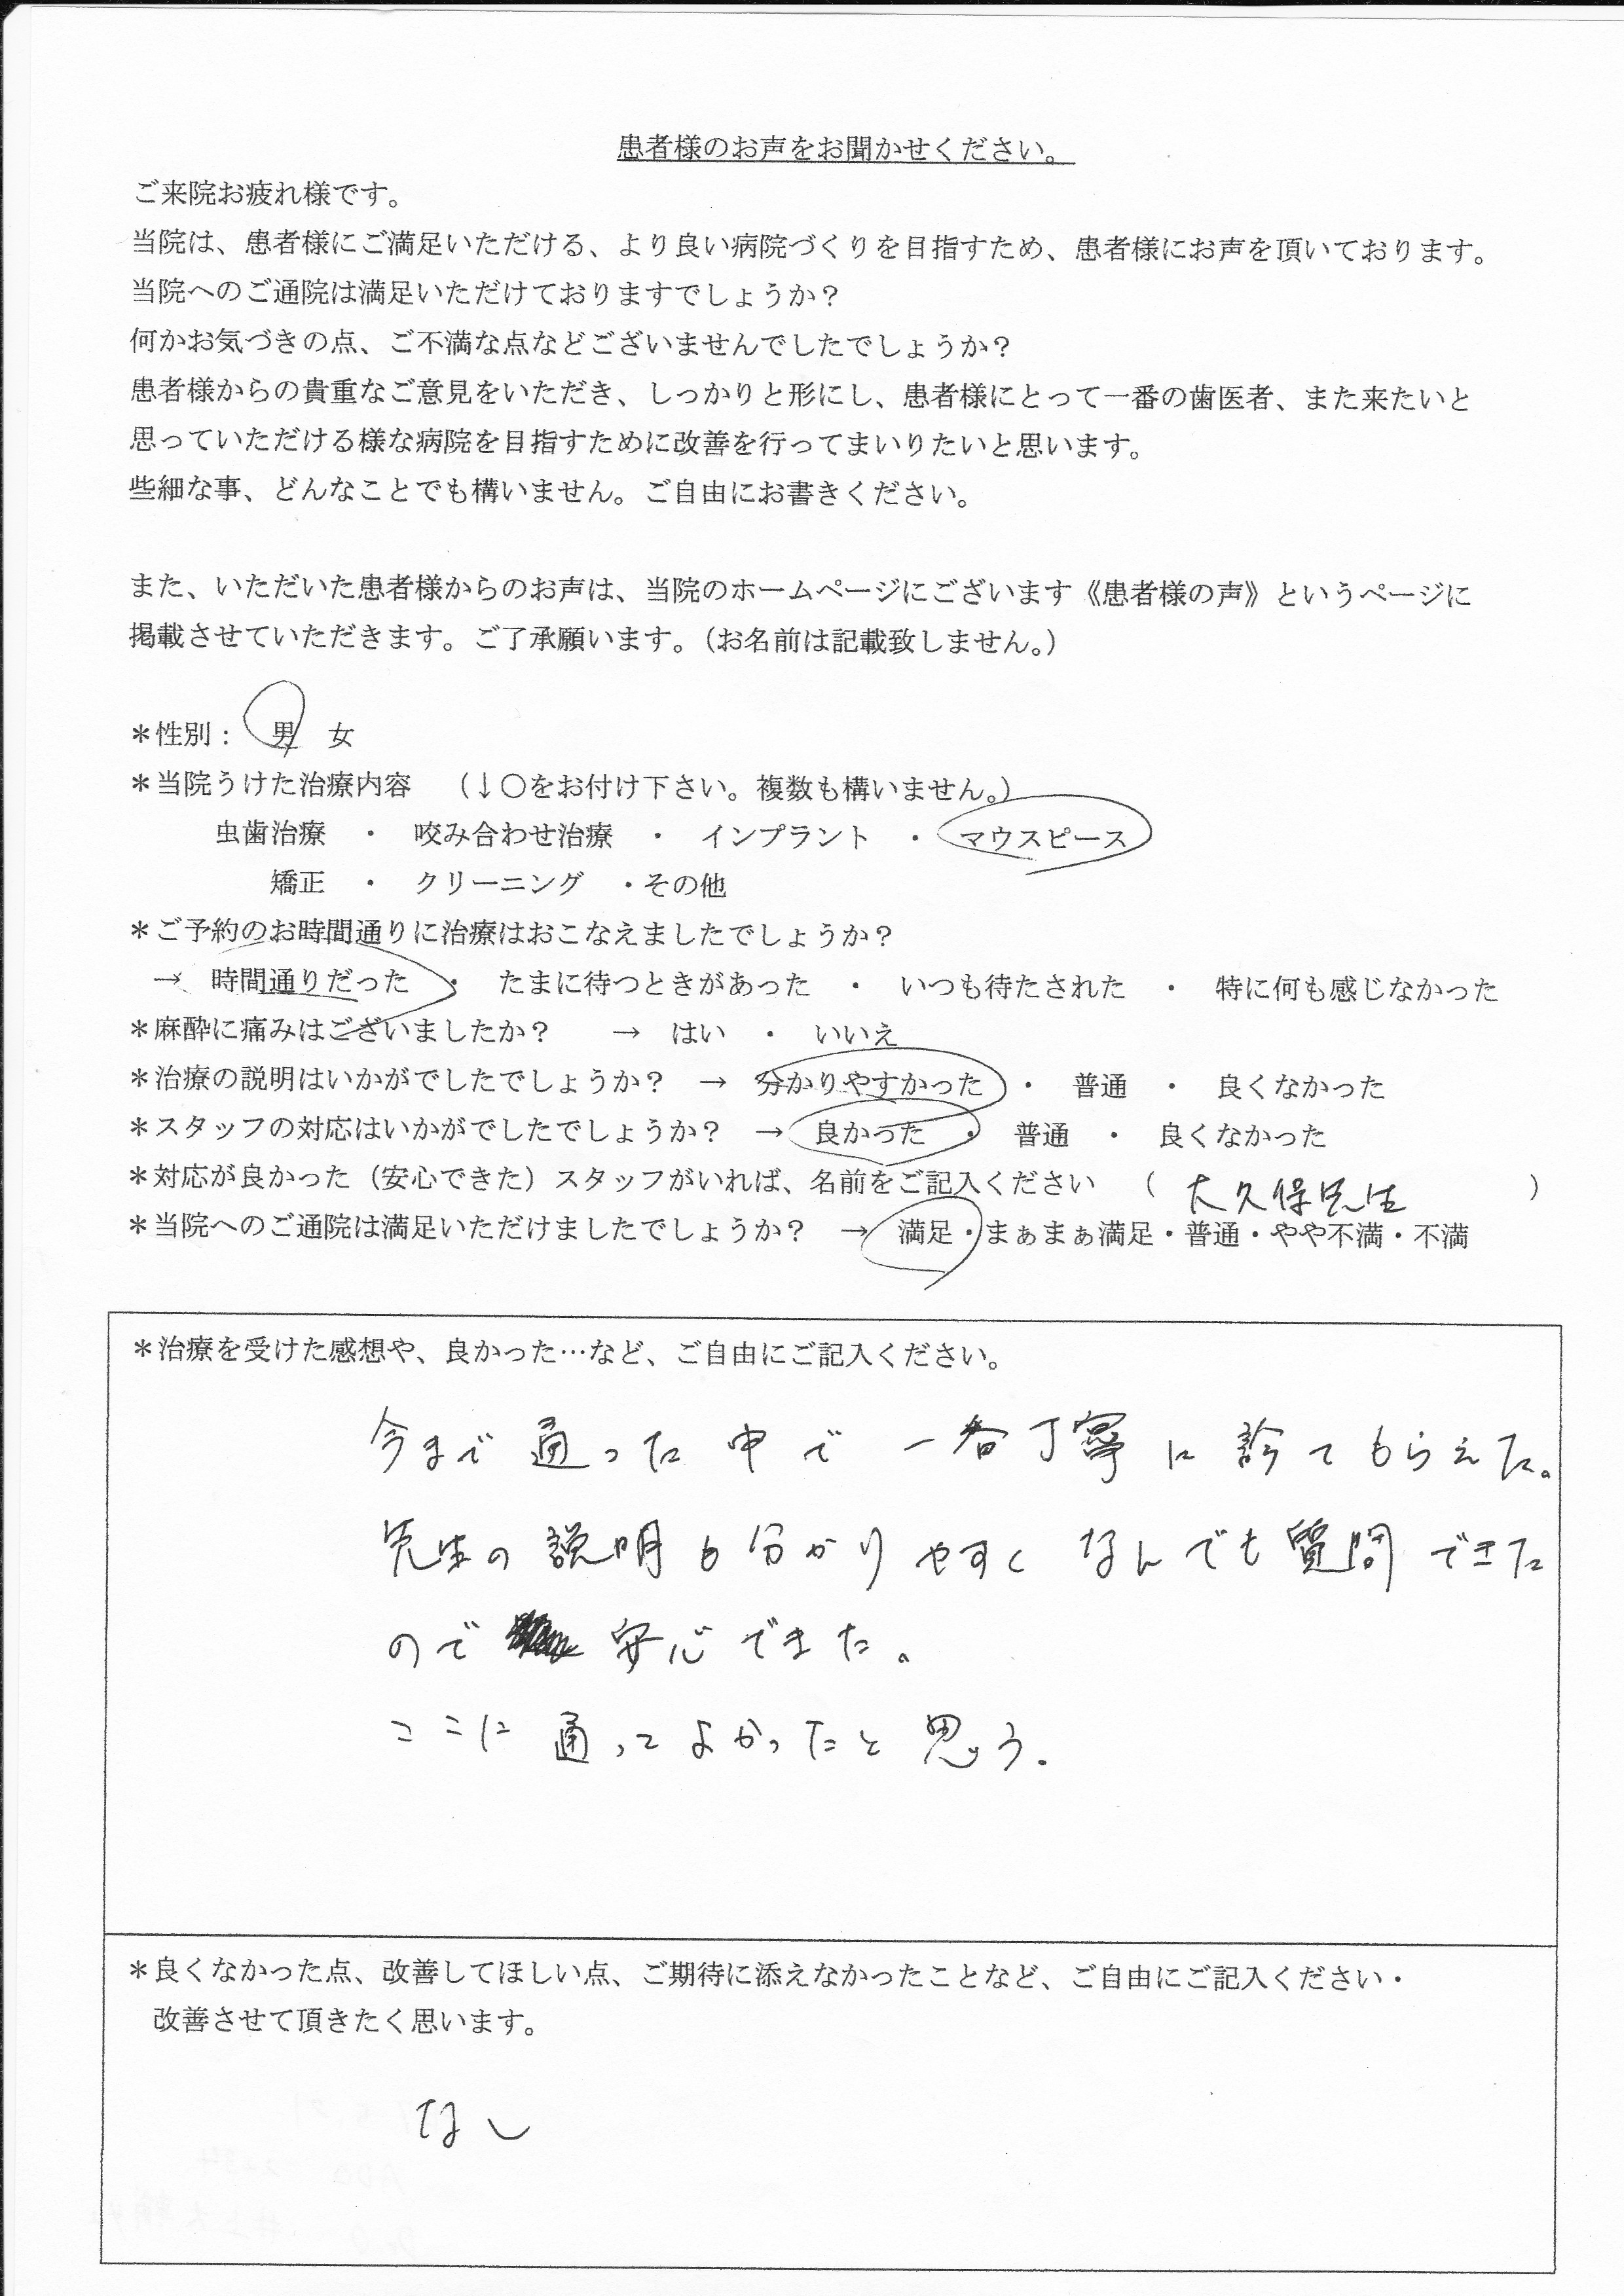 患者様のお声をお聞かせください。
ご来院お疲れ様です。
当院は、患者様にご満足いただける、より良い病院づくりを目指すため、患者様にお声を頂いております。
当院へのご通院は満足いただけておりますでしょうか？
何かお気づきの点、ご不満な点などございませんでしたでしょうか？
患者様からの貴重なご意見をいただき、しっかりと形にし、患者様にとって一番の歯医者、また来たいと
思っていただける様な病院を目指すために改善を行ってまいりたいと思います。
些細な事、どんなことでも構いません。ご自由にお書きください。
また、いただいた患者様からのお声は、当院のホームページにございます《患者様の声》というページに
掲載させていただきます。ご了承願います。（お名前は記載致しません。）
＊性別： 男 女
＊当院うけた治療内容 （↓○をお付け下さい。複数も構いません。）
虫歯治療 ・ 咬み合わせ治療 ・ インプラント ・ マウスピース
矯正 ・ クリーニング ・その他
＊ご予約のお時間通りに治療はおこなえましたでしょうか？
→ 時間通りだった ・ たまに待つときがあった ・ いつも待たされた ・ 特に何も感じなかった
＊麻酔に痛みはございましたか？ → はい ・ いいえ
＊治療の説明はいかがでしたでしょうか？ → 分かりやすかった ・ 普通 ・ 良くなかった
＊スタッフの対応はいかがでしたでしょうか？ → 良かった ・ 普通 ・ 良くなかった
＊対応が良かった（安心できた）スタッフがいれば、名前をご記入ください （ 大久保先生 ）
＊当院へのご通院は満足いただけましたでしょうか？ → 満足・まぁまぁ満足・普通・やや不満・不満
＊治療を受けた感想や、良かった…など、ご自由にご記入ください。
今まで通った中で一番丁寧に診てもらえた。
先生の説明も分かりやすくなんでも質問できた
ので安心できた。
ここに通ってよかったと思う.
＊良くなかった点、改善してほしい点、ご期待に添えなかったことなど、ご自由にご記入ください・
改善させて頂きたく思います。
なし